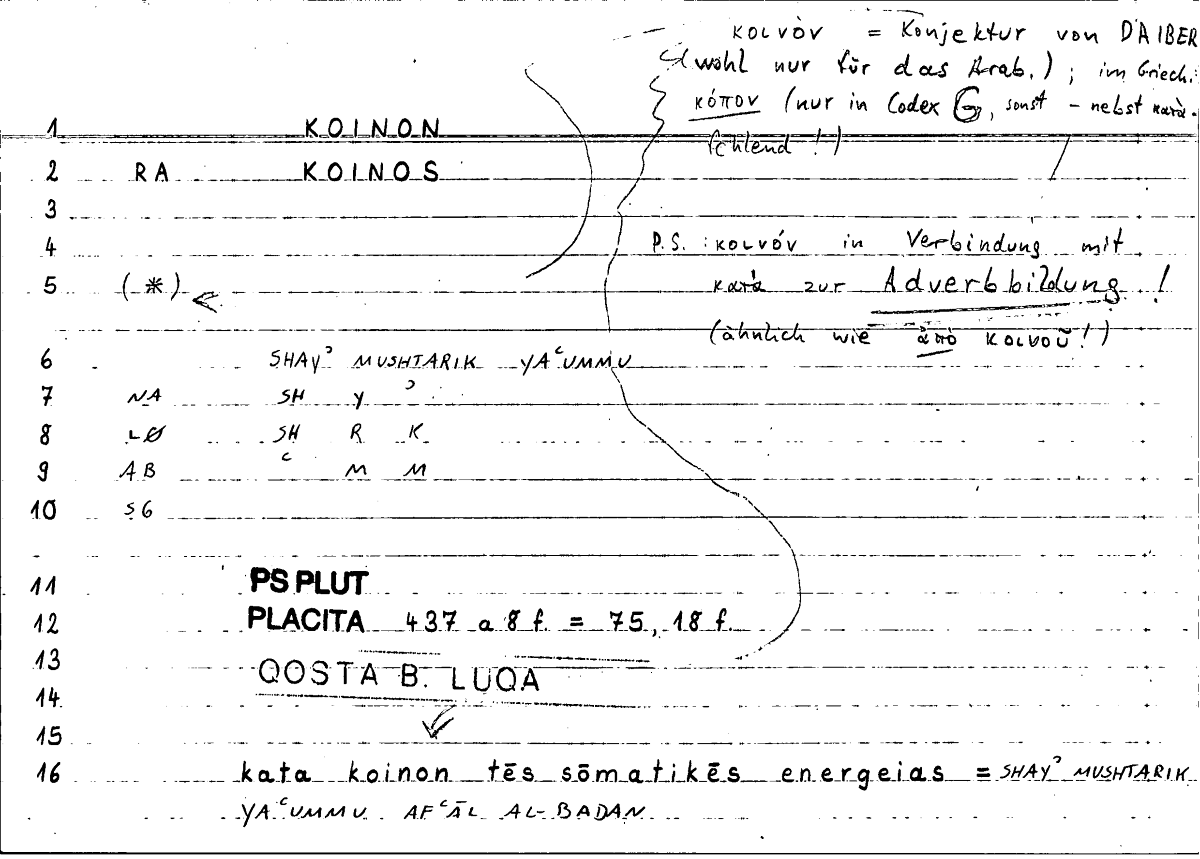 κοινὸν = Konjektur von DAIBER
(wohl nur für das Arab.) ; im Griech.
κόπον (nur in Codex G, sonst – nebst κατὰ -
fehlend !)
1 KOINON
2 RA KOINOS
3
4
P.S. : κοινόν in Verbindung mit
5 (*)
κατὰ zur Adverbbildung !
(ähnlich wie ἀπὸ κοινοῦ !)
6 SHAYʾ MUSHTARIK YAʿUMMU
7 NA SH Y ʾ
8 LØ SH R K
9 AB ʿ M M
10 SG
11 PS PLUT
12 PLACITA 437 a 8 f. = 75, 18 f.
13 QOSTA B. LUQA
14
15
16 kata koinon tēs sōmatikēs energeias = SHAYʾ MUSHTARIK
YAʿUMMU AFʿĀL AL-BADAN